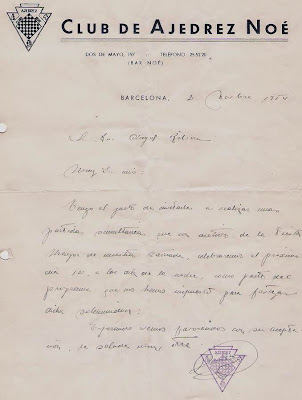 AJEDREZ
CLUB DE AJEDREZ NOÉ
DOS DE MAYO, 197 - TELÉFONO 25.50.20
(BAR NOÉ)
BARCELONA, 2
D.
Muy S. mio:
Tengo el gusto de invitarle a realizar una
partida simultánea que con motivo de la Fiesta
Mayor de nuestra barriada, celebraremos el próximo
día 10, a las de la noche, como parte del
programa que nos hemos impuesto para festejar
dicha solemnidad.
Esperando vernos favorecidos con su acepta-
ción, le saluda
AJEDREZ